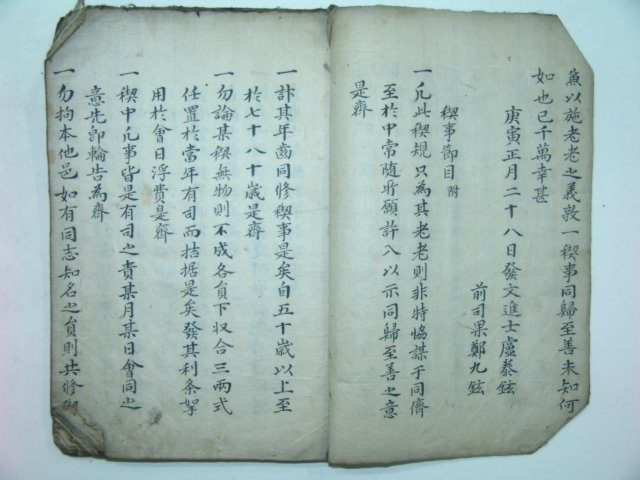 兼以施老老之義敦一稧事同歸至善未知何
如也已千萬幸甚
庚寅正月二十八日發文進士盧泰鉉
前司果鄭九鉉
稧事節目附
一凡此稧規只為其老老則非特協謀于同儕
至於中常隨所願許入以示同歸至善之意
是齊
一計其年齒同修稧事是矣自五十歲以上至
於七十八十歲是齊
一勿論某稧無物則不成各員下収合三兩式
任置於當年有司而拮据是矣發其利条挐
用於會日浮費是齊
一稧中凡事皆是有司之責某月某日會同之
意先卽輪告為齊
一勿拘本他邑如有同志知名之員則共修